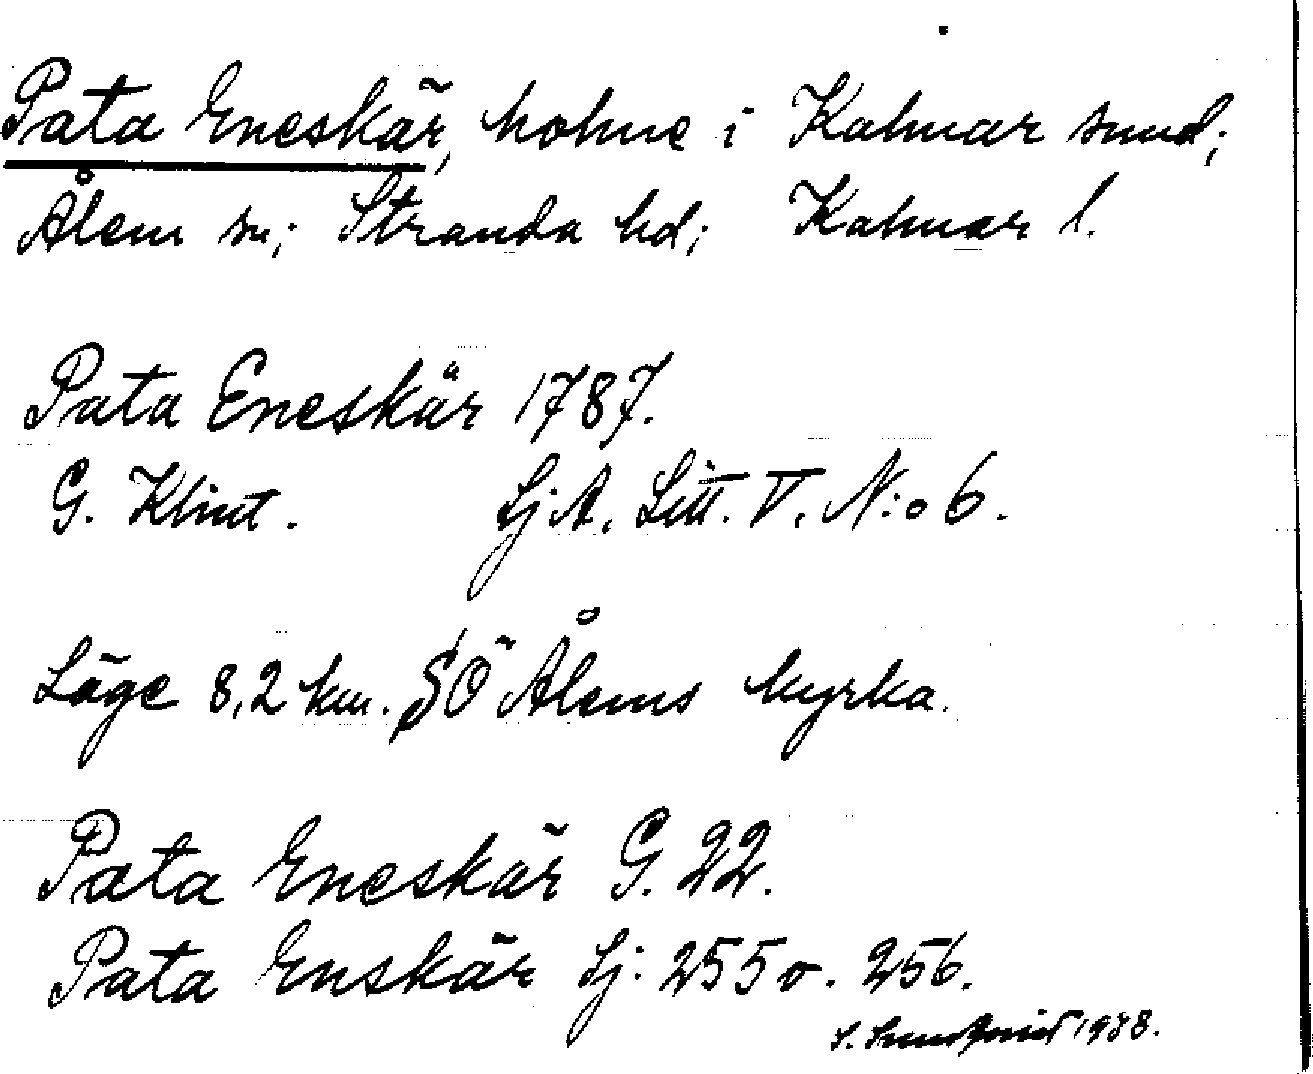 Pata Eneskär, holme i Kalmar sund;
Ålem sn; Stranda hd; Kalmar l.
Pata Eneskär 1787.
G. Klint. Sj A. Litt. V. N:o 6.
Läge 8,2 km. SÖ Ålems kyrka.
Pata Eneskär G. 22.
Pata Enskär Sj: 255 o. 256.